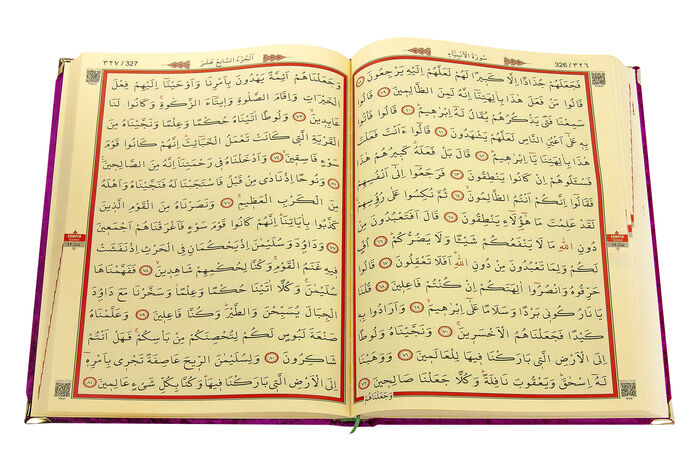 سُورَةُ الْاَنْبِيَاءِ
326/٣٢٦
فَجَعَلَهُمْ جُذَاذًا اِلَّا كَبِيرًا لَهُمْ لَعَلَّهُمْ اِلَيْهِ يَرْجِعُونَ ﴿٥٨﴾
قَالُوا مَنْ فَعَلَ هٰذَا بِاٰلِهَتِنَا اِنَّهُ لَمِنَ الظَّالِمِينَ ﴿٥٩﴾ قَالُوا
سَمِعْنَا فَتًى يَذْكُرُهُمْ يُقَالُ لَهُ اِبْرٰهِيمُ ﴿٦٠﴾ قَالُوا فَأْتُوا
بِهِ عَلٰى اَعْيُنِ النَّاسِ لَعَلَّهُمْ يَشْهَدُونَ ﴿٦١﴾ قَالُوا ءَاَنْتَ فَعَلْتَ
هٰذَا بِاٰلِهَتِنَا يَا اِبْرٰهِيمُ ﴿٦٢﴾ قَالَ بَلْ فَعَلَهُ كَبِيرُهُمْ هٰذَا
فَسْـَٔلُوهُمْ اِنْ كَانُوا يَنْطِقُونَ ﴿٦٣﴾ فَرَجَعُوا اِلٰى اَنْفُسِهِمْ
فَقَالُوا اِنَّكُمْ اَنْتُمُ الظَّالِمُونَ ﴿٦٤﴾ ثُمَّ نُكِسُوا عَلٰى رُؤُ۫سِهِمْ
لَقَدْ عَلِمْتَ مَا هٰٓؤُ۬لَاءِ يَنْطِقُونَ ﴿٦٥﴾ قَالَ اَفَتَعْبُدُونَ مِنْ
دُونِ اللّٰهِ مَا لَا يَنْفَعُكُمْ شَيْـًٔا وَلَا يَضُرُّكُمْ ﴿٦٦﴾ اُفٍّ
لَكُمْ وَلِمَا تَعْبُدُونَ مِنْ دُونِ اللّٰهِ اَفَلَا تَعْقِلُونَ ﴿٦٧﴾ قَالُوا
حَرِّقُوهُ وَانْصُرُوا اٰلِهَتَكُمْ اِنْ كُنْتُمْ فَاعِلِينَ ﴿٦٨﴾ قُلْنَا
يَا نَارُ كُونِي بَرْدًا وَسَلَامًا عَلٰى اِبْرٰهِيمَ ﴿٦٩﴾ وَاَرَادُوا بِهِ
كَيْدًا فَجَعَلْنَاهُمُ الْاَخْسَرِينَ ﴿٧٠﴾ وَنَجَّيْنَاهُ وَلُوطًا
اِلَى الْاَرْضِ الَّتِي بَارَكْنَا فِيهَا لِلْعَالَمِينَ ﴿٧١﴾ وَوَهَبْنَا
لَهُ اِسْحٰقَ وَيَعْقُوبَ نَافِلَةً وَكُلًّا جَعَلْنَا صَالِحِينَ ﴿٧٢﴾
وَجَعَلْنَاهُمْ
اَلْجُزْءُ السَّابِعَ عَشَرَ
٣٢٧/327
وَجَعَلْنَاهُمْ اَئِمَّةً يَهْدُونَ بِاَمْرِنَا وَاَوْحَيْنَا اِلَيْهِمْ فِعْلَ
الْخَيْرَاتِ وَاِقَامَ الصَّلٰوةِ وَاِيتَاءَ الزَّكٰوةِ وَكَانُوا لَنَا
عَابِدِينَ ﴿٧٣﴾ وَلُوطًا اٰتَيْنَاهُ حُكْمًا وَعِلْمًا وَنَجَّيْنَاهُ مِنَ
الْقَرْيَةِ الَّتِي كَانَتْ تَعْمَلُ الْخَبَائِثَ اِنَّهُمْ كَانُوا قَوْمَ
سَوْءٍ فَاسِقِينَ ﴿٧٤﴾ وَاَدْخَلْنَاهُ فِي رَحْمَتِنَا اِنَّهُ مِنَ الصَّالِحِينَ ﴿٧٥﴾
وَنُوحًا اِذْ نَادٰى مِنْ قَبْلُ فَاسْتَجَبْنَا لَهُ فَنَجَّيْنَاهُ وَاَهْلَهُ
مِنَ الْكَرْبِ الْعَظِيمِ ﴿٧٦﴾ وَنَصَرْنَاهُ مِنَ الْقَوْمِ الَّذِينَ
كَذَّبُوا بِاٰيَاتِنَا اِنَّهُمْ كَانُوا قَوْمَ سَوْءٍ فَاَغْرَقْنَاهُمْ اَجْمَعِينَ
﴿٧٧﴾ وَدَاوُ۫دَ وَسُلَيْمٰنَ اِذْ يَحْكُمَانِ فِي الْحَرْثِ اِذْ نَفَشَتْ
فِيهِ غَنَمُ الْقَوْمِ وَكُنَّا لِحُكْمِهِمْ شَاهِدِينَ ﴿٧٨﴾ فَفَهَّمْنَاهَا
سُلَيْمٰنَ وَكُلًّا اٰتَيْنَا حُكْمًا وَعِلْمًا وَسَخَّرْنَا مَعَ دَاوُ۫دَ
الْجِبَالَ يُسَبِّحْنَ وَالطَّيْرَ وَكُنَّا فَاعِلِينَ ﴿٧٩﴾ وَعَلَّمْنَاهُ
صَنْعَةَ لَبُوسٍ لَكُمْ لِتُحْصِنَكُمْ مِنْ بَأْسِكُمْ فَهَلْ اَنْتُمْ
شَاكِرُونَ ﴿٨٠﴾ وَلِسُلَيْمٰنَ الرِّيحَ عَاصِفَةً تَجْرِي بِاَمْرِهِ
اِلَى الْاَرْضِ الَّتِي بَارَكْنَا فِيهَا وَكُنَّا بِكُلِّ شَيْءٍ عَالِمِينَ ﴿٨١﴾